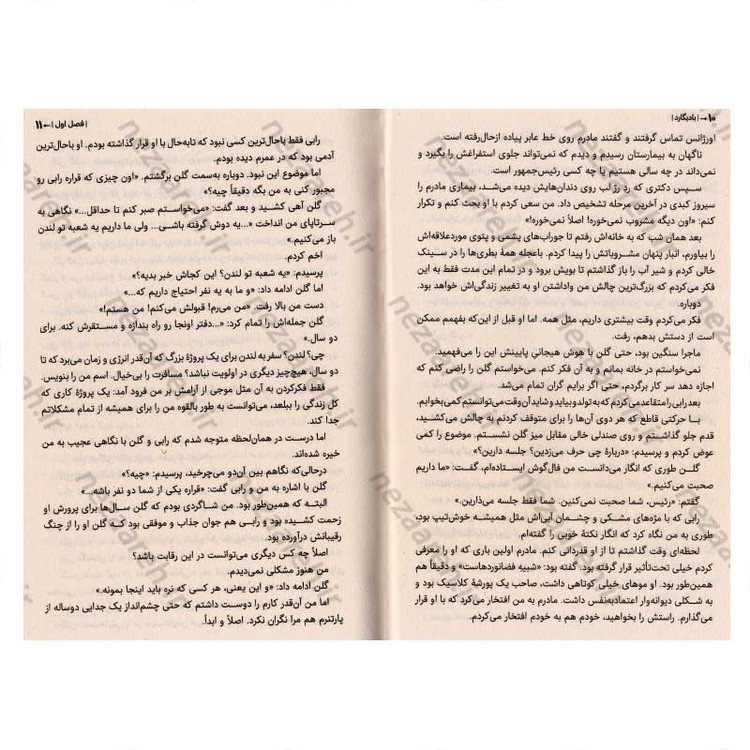 ۱۰ → | بادیگارد |
اورژانس تماس گرفتند و گفتند مادرم روی خط عابر پیاده ازحال‌رفته است.
ناگهان به بیمارستان رسیدم و دیدم که نمی‌تواند جلوی استفراغش را بگیرد و
نمی‌داند در چه سالی هستیم یا چه کسی رئیس‌جمهور است.
سپس دکتری که رد رژ لب روی دندان‌هایش دیده می‌شد، بیماری مادرم را
سیروز کبدی در آخرین مرحله تشخیص داد. من سعی کردم با او بحث کنم و تکرار
کنم: «اون دیگه مشروب نمی‌خوره! اصلاً نمی‌خوره!»
بعد همان شب که به خانه‌اش رفتم تا جوراب‌های پشمی و پتوی موردعلاقه‌اش
را بیاورم، انبار پنهان مشروباتش را پیدا کردم. باعجله همهٔ بطری‌ها را در سینک
خالی کردم و شیر آب را باز گذاشتم تا بویش برود و در تمام این مدت فقط به این
فکر می‌کردم که بزرگ‌ترین چالش من واداشتن او به تغییر زندگی‌اش خواهد بود.
دوباره.
فکر می‌کردم وقت بیشتری داریم، مثل همه. اما او قبل از این‌که بفهمم ممکن
است از دستش بدهم، رفت.
ماجرا سنگین بود، حتی گلن با هوش هیجانی پایینش این را می‌فهمید.
نمی‌خواستم در خانه بمانم و به آن فکر کنم. می‌خواستم گلن را راضی کنم که
اجازه دهد سر کار برگردم، حتی اگر برایم گران تمام می‌شد.
بعد رابی را متقاعد می‌کردم که به تولد و بیاید و شاید آن وقت می‌توانستم کمی بخوابم.
با حرکتی قاطع که هر دوی آن‌ها را برای متوقف کردنم به چالش می‌کشید،
قدم جلو گذاشتم و روی صندلی خالی مقابل میز گلن نشستم. موضوع را کمی
عوض کردم و پرسیدم: «دربارهٔ چی حرف می‌زدین؟ جلسه دارین؟»
گلن طوری که انگار می‌دانست من فال‌گوش ایستاده‌ام، گفت: «ما داریم
صحبت می‌کنیم.»
گفتم: «رئیس، شما صحبت نمی‌کنین. شما فقط جلسه می‌ذارین.»
رابی که با مژه‌های مشکی و چشمان آبی‌اش مثل همیشه خوش‌تیپ بود،
طوری به من نگاه کرد که انگار نکتهٔ خوبی را گفته‌ام.
لحظه‌ای وقت گذاشتم تا از او قدردانی کنم. مادرم اولین باری که او را معرفی
کردم خیلی تحت‌تأثیر قرار گرفته بود. گفته بود: «شبیه فضانوردهاست» و دقیقاً هم
همین‌طور بود. او موهای خیلی کوتاهی داشت، صاحب یک پورشهٔ کلاسیک بود و
به شکلی دیوانه‌وار اعتمادبه‌نفس داشت. مادرم به من افتخار می‌کرد که با او قرار
می‌گذارم. راستش را بخواهید، خودم هم به خودم افتخار می‌کردم.
| فصل اول | ← ۱۱
رابی فقط باحال‌ترین کسی نبود که تابه‌حال با او قرار گذاشته بودم. او باحال‌ترین
آدمی بود که در عمرم دیده بودم.
اما موضوع این نبود. دوباره به‌سمت گلن برگشتم. «اون چیزی که قراره رابی رو
مجبور کنی به من بگه دقیقاً چیه؟»
گلن آهی کشید و بعد گفت: «می‌خواستم صبر کنم تا حداقل...» نگاهی به
سرتاپای من انداخت «...یه دوش گرفته باشی... ولی ما داریم یه شعبه تو لندن
باز می‌کنیم.»
اخم کردم.
پرسیدم: «یه شعبه تو لندن؟ این کجاش خبر بدیه؟»
اما گلن ادامه داد: «و ما به یه نفر احتیاج داریم که...»
دست من بالا رفت. «من می‌رم! قبولش می‌کنم! من هستم!»
گلن جمله‌اش را تمام کرد: «...دفتر اونجا رو راه بندازه و مستقرش کنه. برای
دو سال.»
چی؟ لندن؟ سفر به لندن برای یک پروژهٔ بزرگ که آن‌قدر انرژی و زمان می‌برد که تا
دو سال، هیچ‌چیز دیگری در اولویت نباشد؟ مسافرت را بی‌خیال. اسم من را بنویس.
فقط فکرکردن به آن مثل موجی از آرامش بر من فرود آمد: یک پروژهٔ کاری که
کل زندگی را ببلعد، می‌توانست به طور بالقوه من را برای همیشه از تمام مشکلاتم
جدا کند.
اما درست در همان‌لحظه متوجه شدم که رابی و گلن با نگاهی عجیب به من
خیره شده‌اند.
درحالی‌که نگاهم بین آن‌دو می‌چرخید، پرسیدم: «چیه؟»
گلن با اشاره به من و رابی گفت: «قراره یکی از شما دو نفر باشه...»
البته که همین‌طور بود. من شاگردی بودم که گلن سال‌ها برای پرورش او
زحمت کشیده بود و رابی هم جوان جذاب و موفقی بود که گلن او را از چنگ
رقیبانش درآورده بود.
اصلاً چه کس دیگری می‌توانست در این رقابت باشد؟
من هنوز مشکلی نمی‌دیدم.
گلن ادامه داد: «و این یعنی، هر کسی که نره باید اینجا بمونه.»
اما من آن‌قدر کارم را دوست داشتم که حتی چشم‌انداز یک جدایی دوساله از
پارتنرم هم مرا نگران نکرد. اصلاً و ابداً.
nezaareh.ir